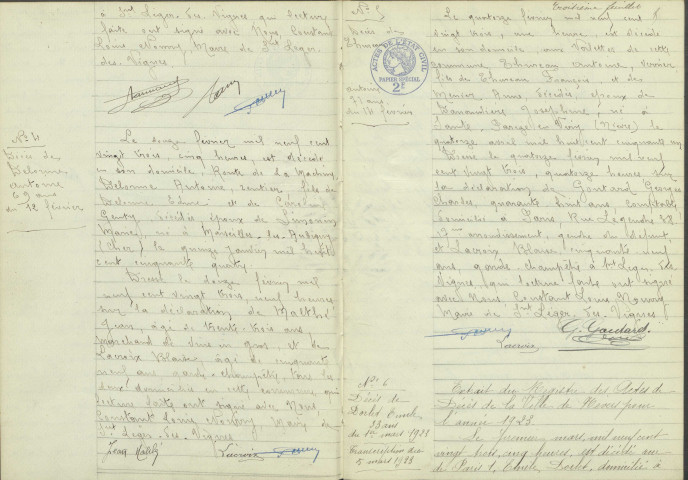 à St Léger-des-Vignes qui lecture
faite ont signé avec Nous, Constant
Louis Nourry, Maire de St Léger
des Vignes
N° 4
Décès de
Delorme
Antoine
69 ans
du 12 février
Le douze février mil neuf cent
vingt trois, cinq heures, est décédé
en son domicile, Route de La Machine,
Delorme Antoine, rentier, fils de
Delorme et de
décédés, époux de
Marie, né à Marseilles-les-Aubigny
(Cher) le quinze janvier mil huit
cent cinquante quatre
Dressé le douze février mil
neuf cent vingt trois, neuf heures
sur la déclaration de
Jean, âgé de trente trois ans
marchand de vins en gros, et de
Lacroix Blaise, âgé de cinquante
neuf ans garde champêtre, tous les
deux domiciliés en cette commune, qui
lecture faite ont signé avec Nous,
Constant Louis Nourry, Maire de
St Léger-des-Vignes
Lacroix
Troisième feuillet
N° 5
Décès de
Antoine
du 14 février
ACTES DE L'ÉTAT CIVIL
PAPIER SPÉCIAL
2F
Le quatorze février mil neuf cent
vingt trois, une heure, est décédé
en son domicile, aux de cette
commune, Antoine, verrier
fils de François, et de
Anne, décédés, époux de
Joséphine, né à
(Nièvre) le
quatorze avril mil huit cent cinquante un
Dressé le quatorze février mil neuf
cent vingt trois, quatorze heures sur
la déclaration de Georges
Charles, quarante huit ans, comptable,
domicilié à Paris, Rue Legendre
17e arrondissement, gendre du défunt
et Lacroix Blaise, cinquante neuf
ans, garde champêtre à St Léger-des-
Vignes, qui lecture faite ont signé
avec Nous Constant Louis Nourry
Maire de St Léger-des-Vignes
Lacroix
N° 6
Décès de
28 ans
du 1er mars 1923
Transcription du
5 mars 1923
Extrait du Registre des Actes de
Décès de la Ville de Nevers pour
l'année 1923.
Le premier mars mil neuf cent
vingt trois, cinq heures, est décédé rue
de Paris 1, domicilié à